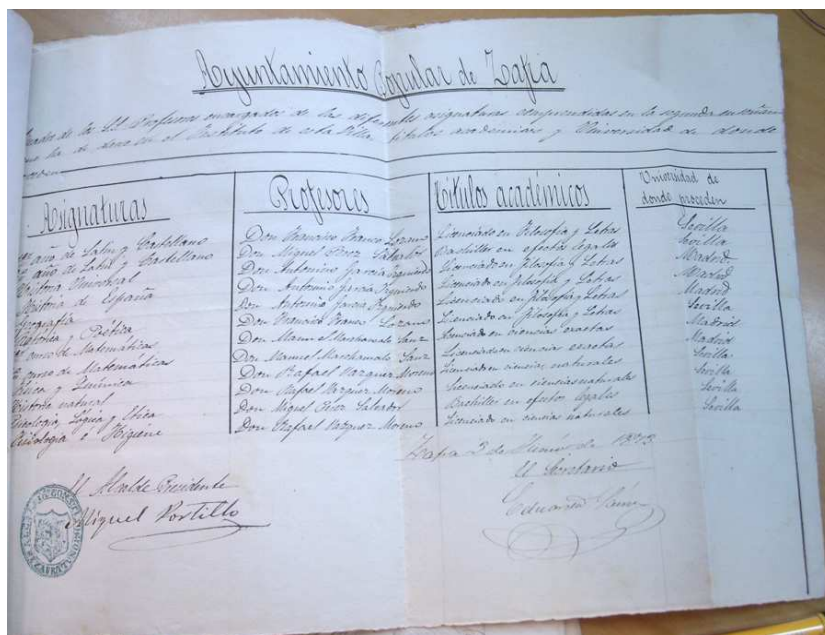 Ayuntamiento Popular de Zafra
de los SS. Profesores encargados de las diferentes asignaturas comprendidas en la segunda
en el Instituto de esta Villa, títulos académicos y Universidad de donde
Asignaturas Profesores Títulos académicos Universidad de donde proceden
año de Latín y Castellano Don Francisco Franco Lozano Licenciado en Filosofía y Letras Sevilla
año de Latín y Castellano Don Miguel Pérez Salvador Bachiller en efectos legales Sevilla
Historia Universal Don Antonio García Izquierdo Licenciado en filosofía y Letras Madrid
Historia de España Don Antonio García Izquierdo Licenciado en filosofía y Letras Madrid
Geografía Don Antonio García Izquierdo Licenciado en filosofía y Letras Madrid
Retórica y Poética Don Francisco Franco Lozano Licenciado en filosofía y Letras Sevilla
curso de Matemáticas Don Manuel Marchamalo Sanz Licenciado en ciencias exactas Madrid
curso de Matemáticas Don Manuel Marchamalo Sanz Licenciado en ciencias exactas Madrid
Física y Química Don Rafael Vazquez Moreno Licenciado en ciencias naturales Sevilla
Historia natural Don Rafael Vazquez Moreno Licenciado en ciencias naturales Sevilla
Psicología, Lógica y Ética Don Miguel Pérez Salvador Bachiller en efectos legales Sevilla
Fisiología é Higiene Don Rafael Vazquez Moreno Licenciado en ciencias naturales Sevilla
Zafra 3 de de 1873
El Alcalde Presidente El Secretario
Miguel Portillo Eduardo